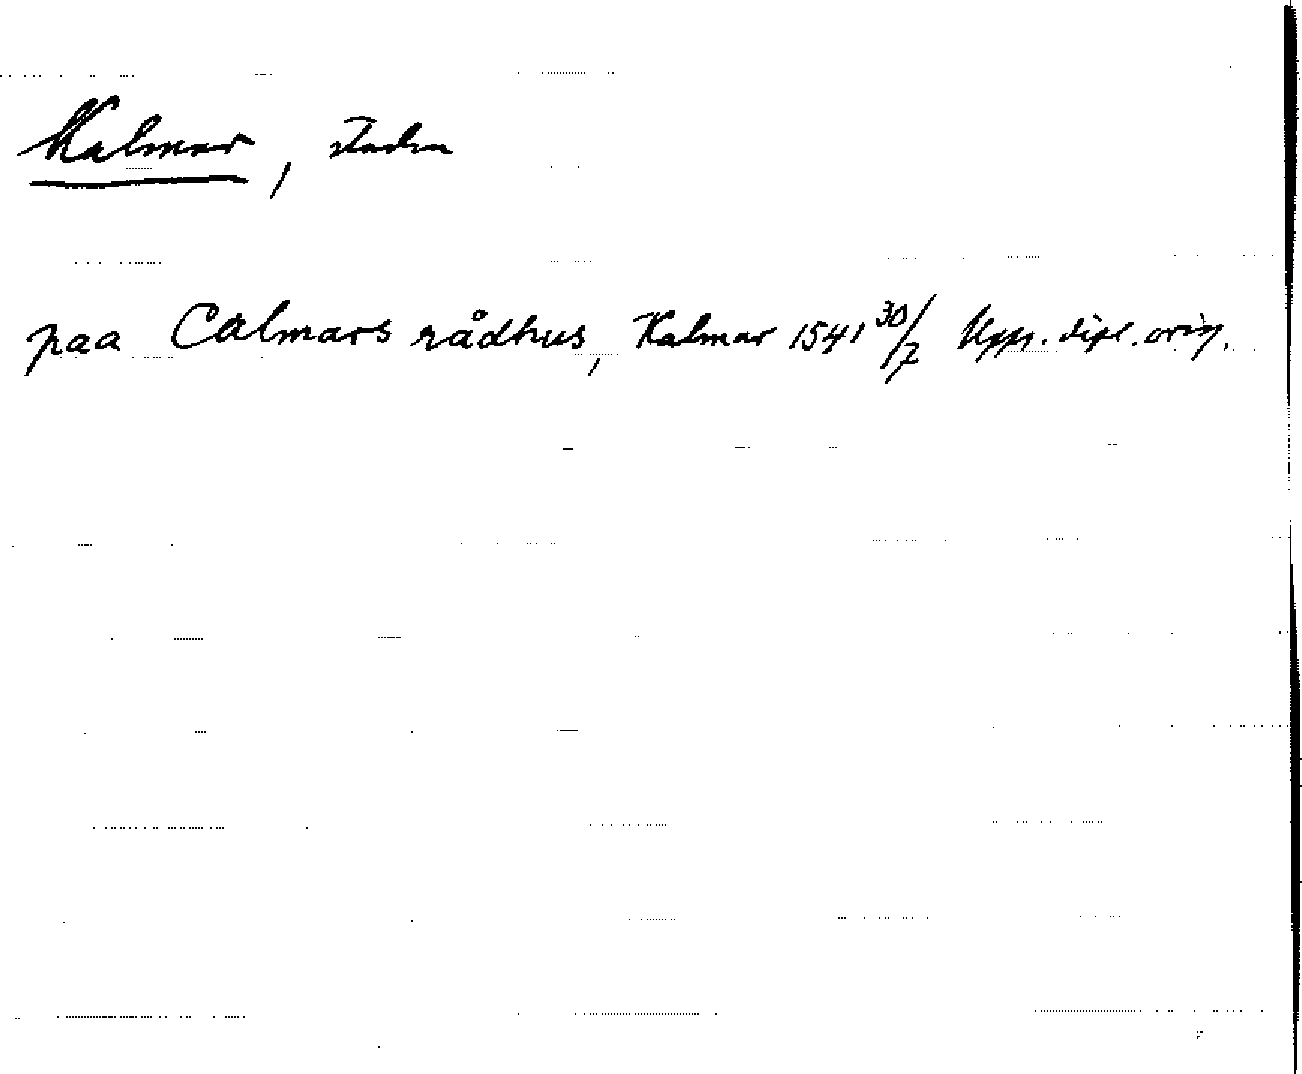 Kalmar, staden
paa Calmars rådhus, Kalmar 1541 30/7 Upps. dipl. orig.